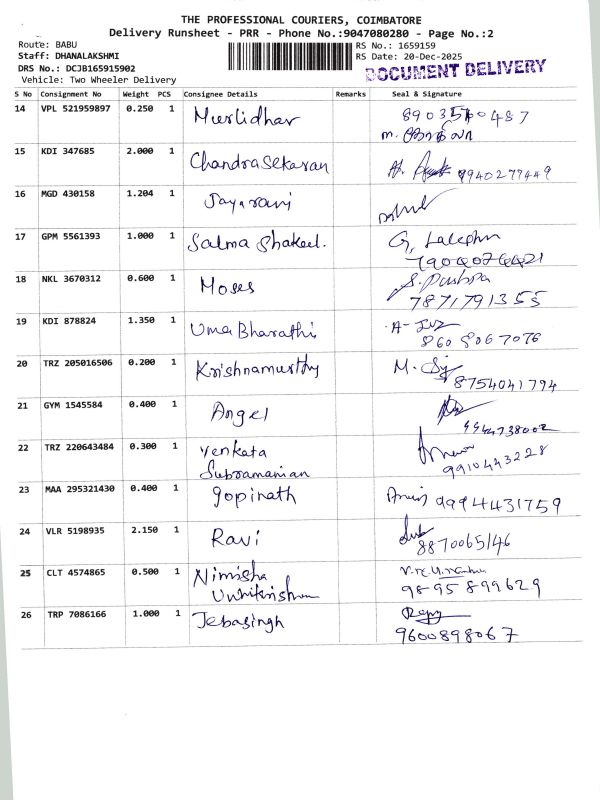 THE PROFESSIONAL COURIERS, COIMBATORE
Delivery Runsheet - PRR - Phone No.:9047080280 - Page No.:2
Route: BABU
Staff: DHANALAKSHMI
DRS No.: DCJB165915902
Vehicle: Two Wheeler Delivery
RS No.: 1659159
RS Date: 20-Dec-2025
DOCUMENT DELIVERY
S No Consignment No Weight PCS Consignee Details Remarks Seal & Signature
14 VPL 521959897 0.250 1 Murlidhar
15 KDI 347685 2.000 1 Chandrasekaran 9940277449
16 MGD 430158 1.204 1 Jayarani
17 GPM 5561393 1.000 1 Salma Shakeel.
18 NKL 3670312 0.600 1 Moses
7871791355
19 KDI 878824 1.350 1 Uma Bharathi
20 TRZ 205016506 0.200 1 Krishnamurthy
8754041794
21 GYM 1545584 0.400 1 Angel
22 TRZ 220643484 0.300 1 Venkata
Subramanian 9910443228
23 MAA 295321430 0.400 1 Gopinath 9994431759
24 VLR 5198935 2.150 1 Ravi
8870065146
25 CLT 4574865 0.500 1 Nimisha
Unnikrishnan 9895899629
26 TRP 7086166 1.000 1 Jebasingh
9600898067